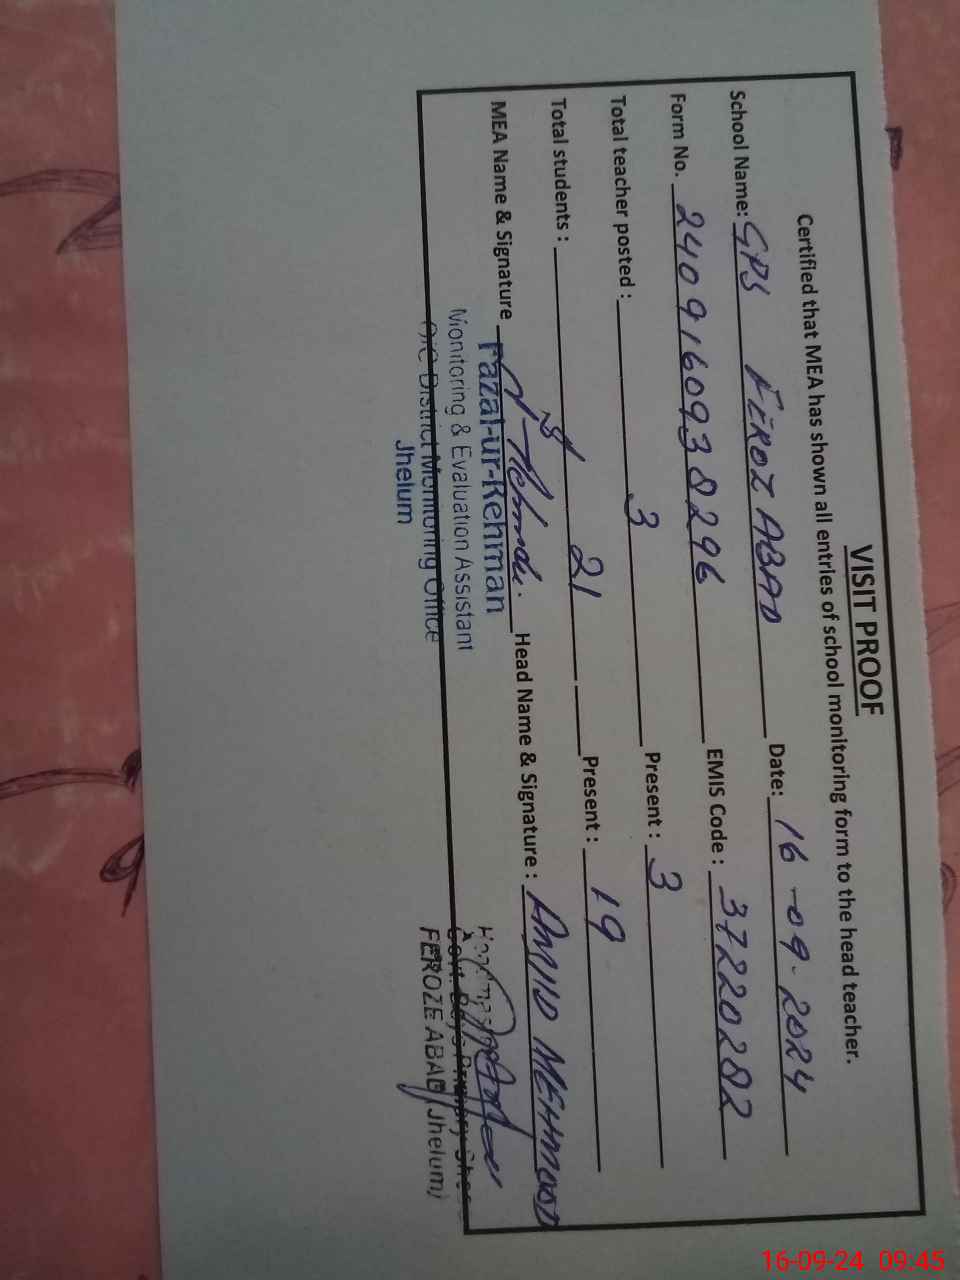 VISIT PROOF
Certified that MEA has shown all entries of school monitoring form to the head teacher.
School Name: GPS FEROZ ABAD Date: 16-09-2024
Form No. 2409160938296 EMIS Code : 37220282
Total teacher posted : 3 Present : 3
Total students : 21 Present : 19
MEA Name & Signature Head Name & Signature : MEHMOOD
Fazal-ur-Rehman
Monitoring & Evaluation Assistant
O/O District Monitoring Office
Jhelum
Govt. Boys Primary
FEROZE ABAD (Jhelum)
16-09-24 09:45